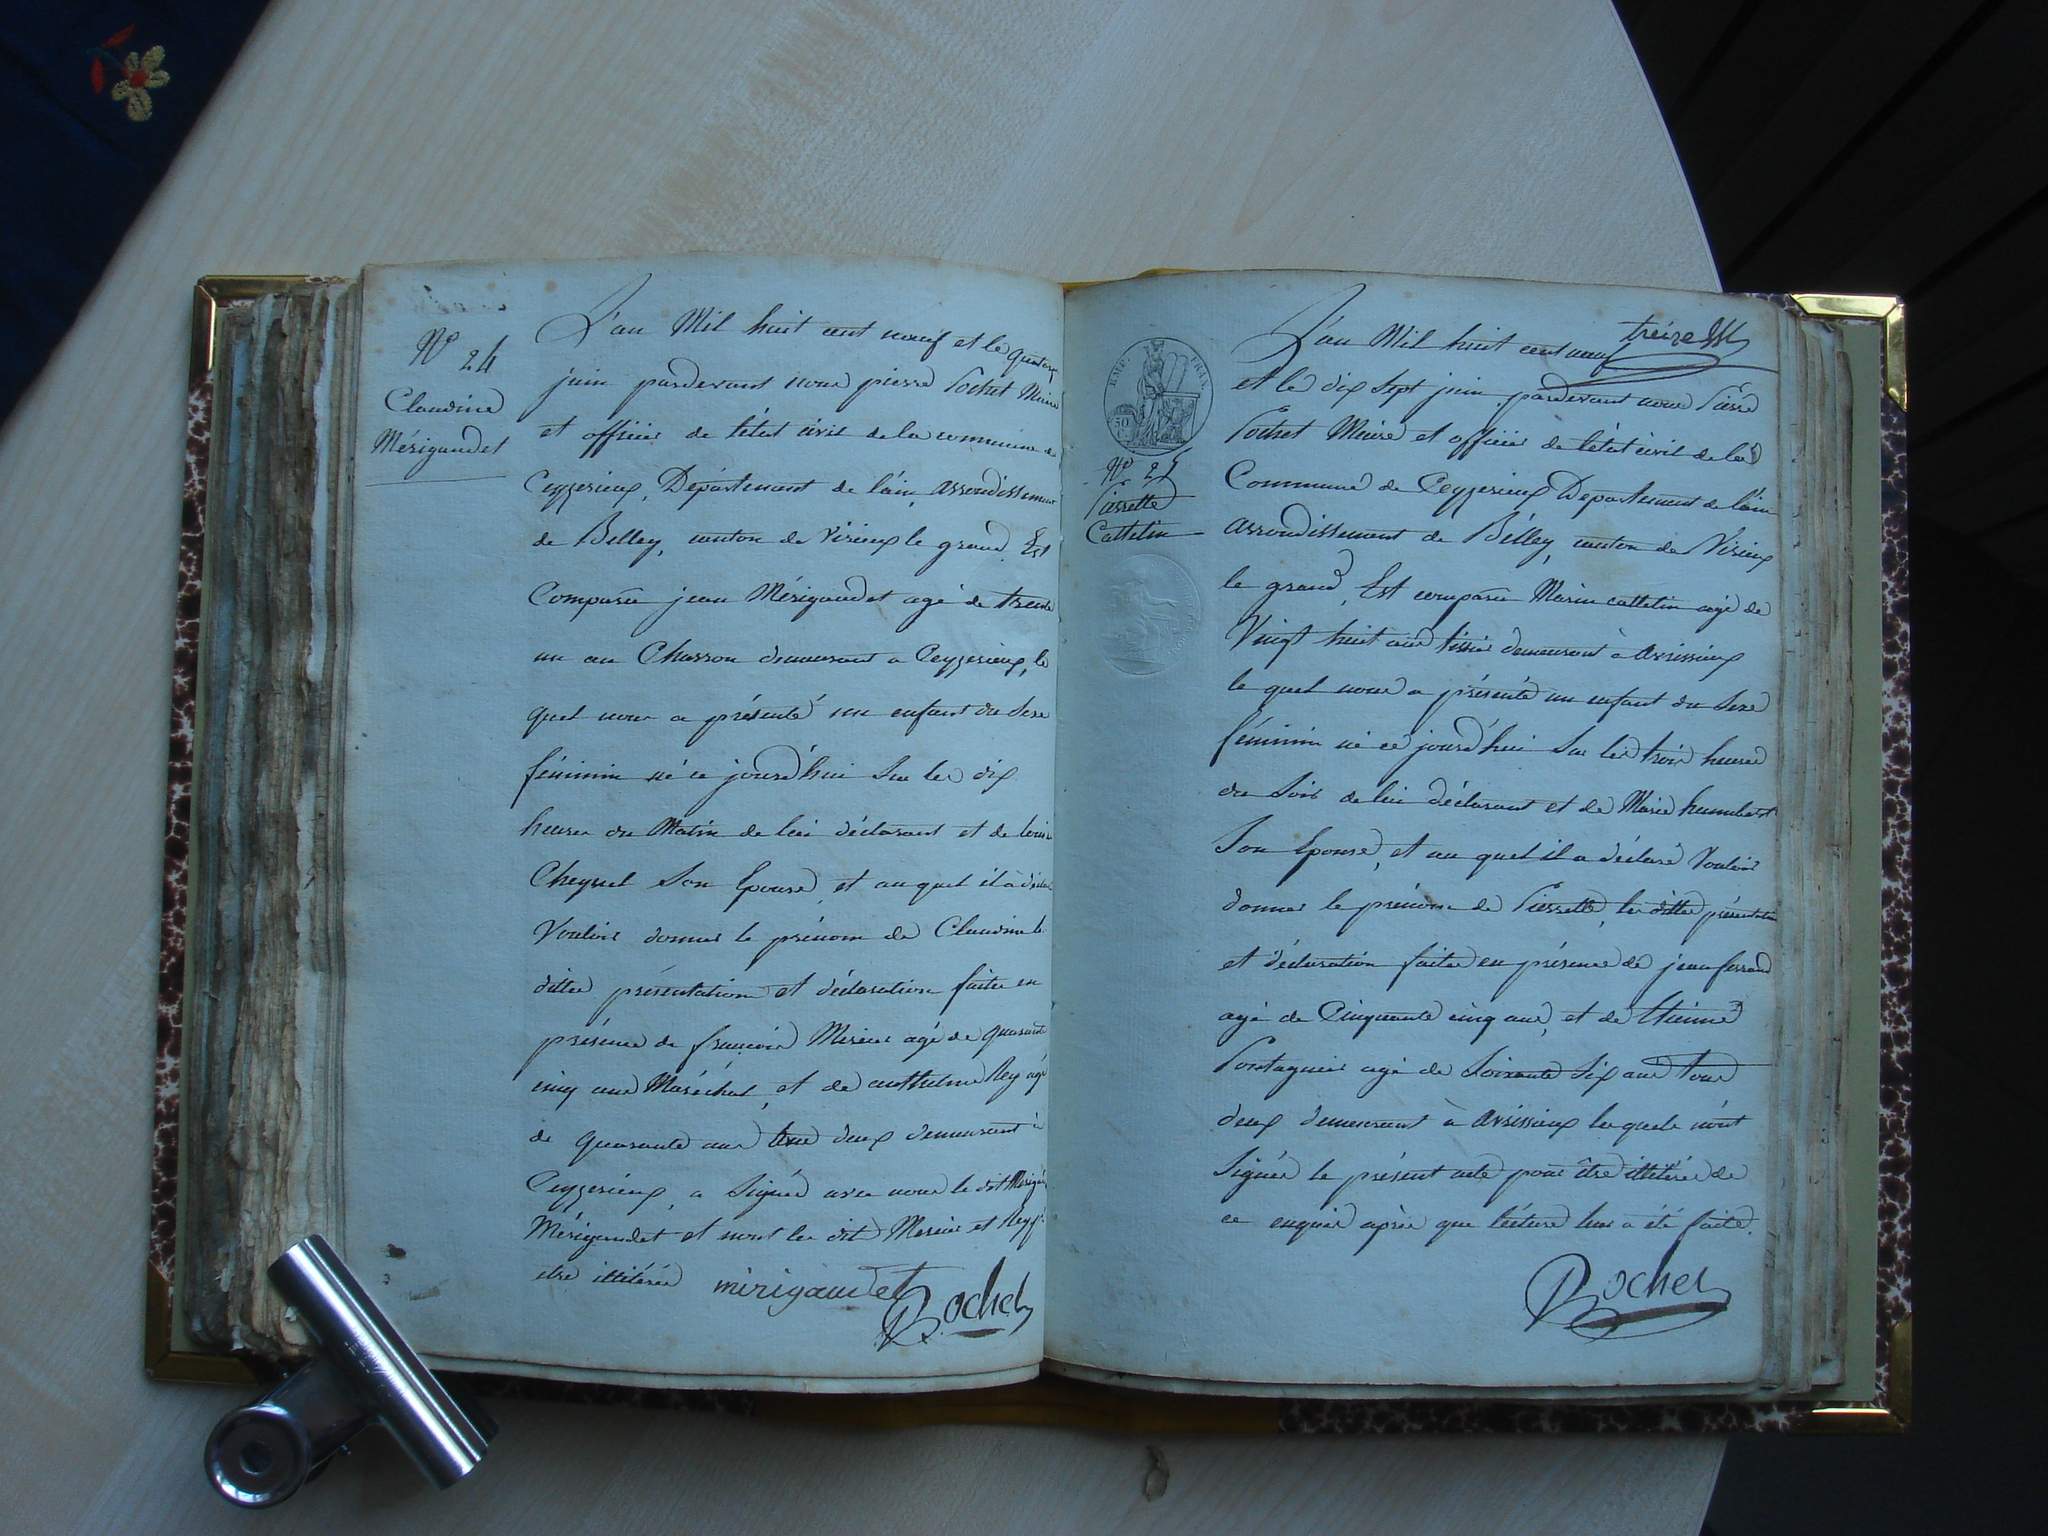 N.º 24
Claudine
Mérigaudet
L'an Mil huit cent neuf et le quatorze
juin pardevant nous pierre Pochet Maire
et officier de l'état civil de la commune de
Ceyzerieux, Département de l'ain, arrondissement
de Belley, canton de Virieux le grand, Est
Comparu jean Mérigaudet agé de trente
un an Charron demeurant a Ceyzerieux, le
quel nous a présenté un enfant du Sexe
féminin né ce jourd'hui Sur les dix
heures du Matin de lui déclarant et de
Son Epouse, et au quel il à
Vouloir donner le prénom de Claudine la
ditte présentation et déclaration faite en
présence de françois Mercier agé de quarante
cinq ans Maréchal, et de anthelme Rey agé
de quarante ans tous deux demeurant à
Ceyzerieux, a Signé avec nous le dit
Mérigaudet et nont les dit Mercier et Rey pr
etre illitérés
mirigaudet
Bochet
treize
L'an Mil huit cent neuf
et le dix Sept juin pardevant nous Pierre
Pochet Maire et officier de l'état civil de la
Commune de Ceyzerieux Département de l'ain
arrondissement de Bélley, canton de Virieux
le grand, Est comparu Marin cattelin agé de
Vingt huit ans tissier demeurant à avrissieux
le quel nous a présenté un enfant du Sexe
féminin né ce jourd'hui Sur les trois heures
du Soir de lui déclarant et de Marie humbert
Son Epouse, et au quel il a déclaré Vouloir
donner le prénom de Pierrette, la ditte présentation
et déclaration faite en présence de jean ferrand
agé de Cinquante cinq ans, et de Etienne
agé de Soixante Six ans tous
deux demeurant à avrissieux les quels n'ont
Signés le présent acte pour être illitérés de
ce enquis après que lécture leur a été faite.
Bochet
EMP. FRAN.
50
C.
N.º 25
Pierrette
Cattelin